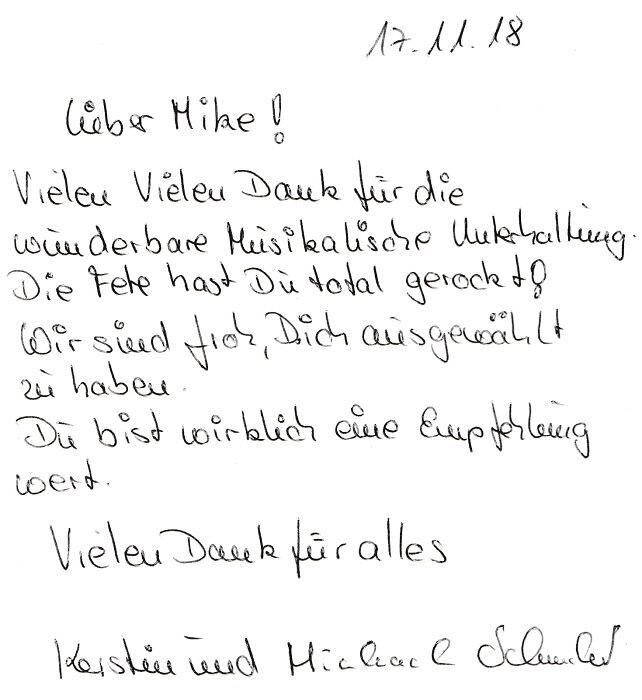 17.11.18
Lieber Mike!
Vielen Vielen Dank für die
wunderbare Musikalische Unterhaltung.
Die Fete hast Du total gerockt!
Wir sind froh, Dich ausgewählt
zu haben.
Du bist wirklich eine Empfehlung
wert.
Vielen Dank für alles
Kerstin und Michael